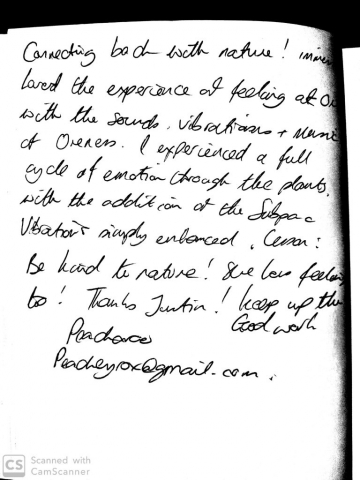 Connecting back with nature!
loved the experience of feeling at
with the sounds, vibrations + Music
of Oneness. I experienced a full
cycle of emotion through the plants,
with the addition of the Subpac
Vibrations simply enhanced.
Be kind to nature! She has feelings
to! Thanks Justin! keep up the
Good work
Peacherox
Peacheyrox@gmail.com.
CS Scanned with
CamScanner